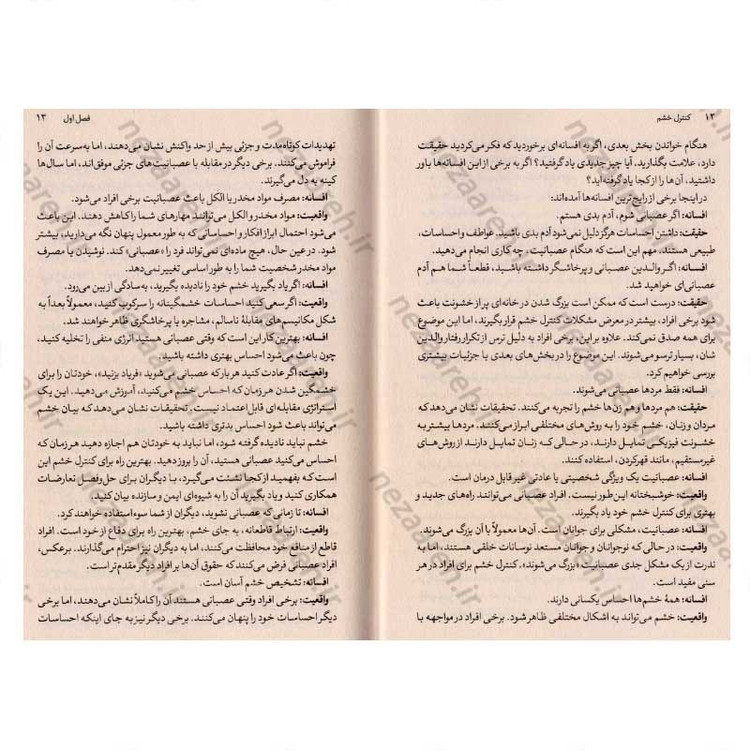 ۱۲ کنترل خشم
هنگام خواندن بخش بعدی، اگر به افسانه‌ای برخوردید که فکر می‌کردید حقیقت
دارد، علامت بگذارید. آیا چیز جدیدی یاد گرفتید؟ اگر به برخی از این افسانه‌ها باور
داشتید، آن‌ها را از کجا یاد گرفته‌اید؟
در اینجا برخی از رایج‌ترین افسانه‌ها آمده‌اند:
افسانه: اگر عصبانی شوم، آدم بدی هستم.
حقیقت: داشتن احساسات هرگز دلیل نمی‌شود آدم بدی باشید. عواطف و احساسات،
طبیعی هستند. مهم این است که هنگام عصبانیت، چه کاری انجام می‌دهید.
افسانه: اگر والدین عصبانی و پرخاشگر داشته باشید، قطعاً شما هم آدم
عصبانی‌ای خواهید شد.
حقیقت: درست است که ممکن است بزرگ شدن در خانه‌ای پر از خشونت باعث
شود برخی افراد، بیشتر در معرض مشکلات کنترل خشم قرار بگیرند، اما این موضوع
برای همه صدق نمی‌کند. علاوه بر این، برخی افراد به دلیل ترس از تکرار رفتار والدین
شان، بسیار ترسو می‌شوند. این موضوع را در بخش‌های بعدی با جزئیات بیشتری
بررسی خواهیم کرد.
افسانه: فقط مردها عصبانی می‌شوند.
حقیقت: هم مردها و هم زن‌ها خشم را تجربه می‌کنند. تحقیقات نشان می‌دهد که
مردان و زنان، خشم خود را به روش‌های مختلفی ابراز می‌کنند. مردها بیشتر به
خشونت فیزیکی تمایل دارند، در حالی‌که زنان تمایل دارند از روش‌های
غیرمستقیم، مانند قهر کردن، استفاده کنند.
افسانه: عصبانیت یک ویژگی شخصیتی یا عادتی غیر قابل درمان است.
واقعیت: خوشبختانه این‌طور نیست. افراد عصبانی می‌توانند راه‌های جدید و
بهتری برای کنترل خشم خود یاد بگیرند.
افسانه: عصبانیت، مشکلی برای جوانان است. آن‌ها معمولاً با آن بزرگ می‌شوند.
واقعیت: در حالی که نوجوانان و جوانان مستعد نوسانات خلقی هستند، اما به
ندرت از یک مشکل جدی عصبانیت «بزرگ می‌شوند». کنترل خشم برای افراد در هر
سنی مفید است.
افسانه: همهٔ خشم‌ها احساس یکسانی دارند.
واقعیت: خشم می‌تواند به اشکال مختلفی ظاهر شود. برخی افراد در مواجهه با
فصل اول ۱۳
تهدیدات کوتاه‌مدت و جزئی بیش از حد واکنش نشان می‌دهند، اما به سرعت آن را
فراموش می‌کنند. برخی دیگر در مقابله با عصبانیت‌های جزئی موفق‌اند، اما سال‌ها
کینه به دل می‌گیرند.
افسانه: مصرف مواد مخدر یا الکل باعث عصبانیت برخی افراد می‌شود.
واقعیت: مواد مخدر و الکل می‌توانند مهارهای شما را کاهش دهند. این باعث
می‌شود احتمال ابراز افکار و احساساتی که به طور معمول پنهان نگه می‌دارید، بیشتر
شود. در عین حال، هیچ ماده‌ای نمی‌تواند فرد را «عصبانی» کند. نوشیدن یا مصرف
مواد مخدر شخصیت شما را به طور اساسی تغییر نمی‌دهد.
افسانه: اگر یاد بگیرید خشم خود را نادیده بگیرید، به‌سادگی از بین می‌رود.
واقعیت: اگر سعی کنید احساسات خشمگینانه را سرکوب کنید، معمولاً بعداً به
شکل مکانیسم‌های مقابلهٔ ناسالم، مشاجره یا پرخاشگری ظاهر خواهند شد.
افسانه: بهترین کار این است که وقتی عصبانی هستید انرژی منفی را تخلیه کنید،
چون باعث می‌شود احساس بهتری داشته باشید.
واقعیت: اگر عادت کنید هر بار که عصبانی می‌شوید «فریاد بزنید»، خودتان را برای
خشمگین شدن هر زمان که احساس خشم می‌کنید، آموزش می‌دهید. این یک
استراتژی مقابله‌ای قابل‌اعتماد نیست. تحقیقات نشان می‌دهد که بیان خشم
می‌تواند باعث شود احساس بدتری داشته باشید.
خشم نباید نادیده گرفته شود، اما نباید به خودتان هم اجازه دهید هر زمان که
احساس می‌کنید عصبانی هستید، آن را بروز دهید. بهترین راه برای کنترل خشم این
است که بفهمید از کجا نشئت می‌گیرد، با دیگران برای حل‌وفصل تعارضات
همکاری کنید و یاد بگیرید آن را به شیوه‌ای ایمن و سازنده بیان کنید.
افسانه: تا زمانی که عصبانی نشوید، دیگران از شما سوءاستفاده خواهند کرد.
واقعیت: ارتباط قاطعانه، به جای خشم، بهترین راه برای دفاع از خود است. افراد
قاطع از منافع خود محافظت می‌کنند، اما به دیگران نیز احترام می‌گذارند. برعکس،
افراد عصبانی فرض می‌کنند که حقوق آن‌ها بر افراد دیگر مقدم‌تر است.
افسانه: تشخیص خشم آسان است.
واقعیت: برخی افراد وقتی عصبانی هستند آن را کاملاً نشان می‌دهند، اما برخی
دیگر احساسات خود را پنهان می‌کنند. برخی دیگر نیز به جای اینکه احساسات
nezaareh.ir